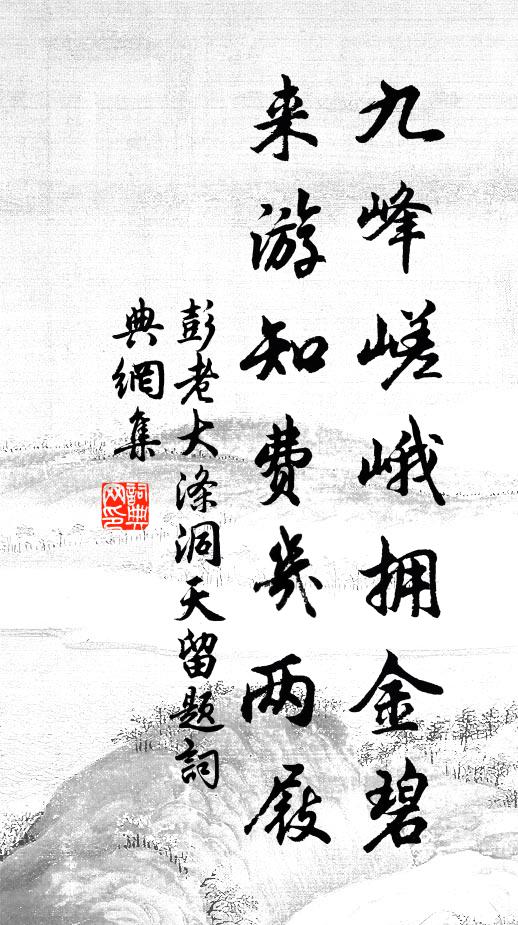 九峰嵯峨拥金碧
来游知费几两屐
彭老大涤洞天留题詞
典網集
詞典网印